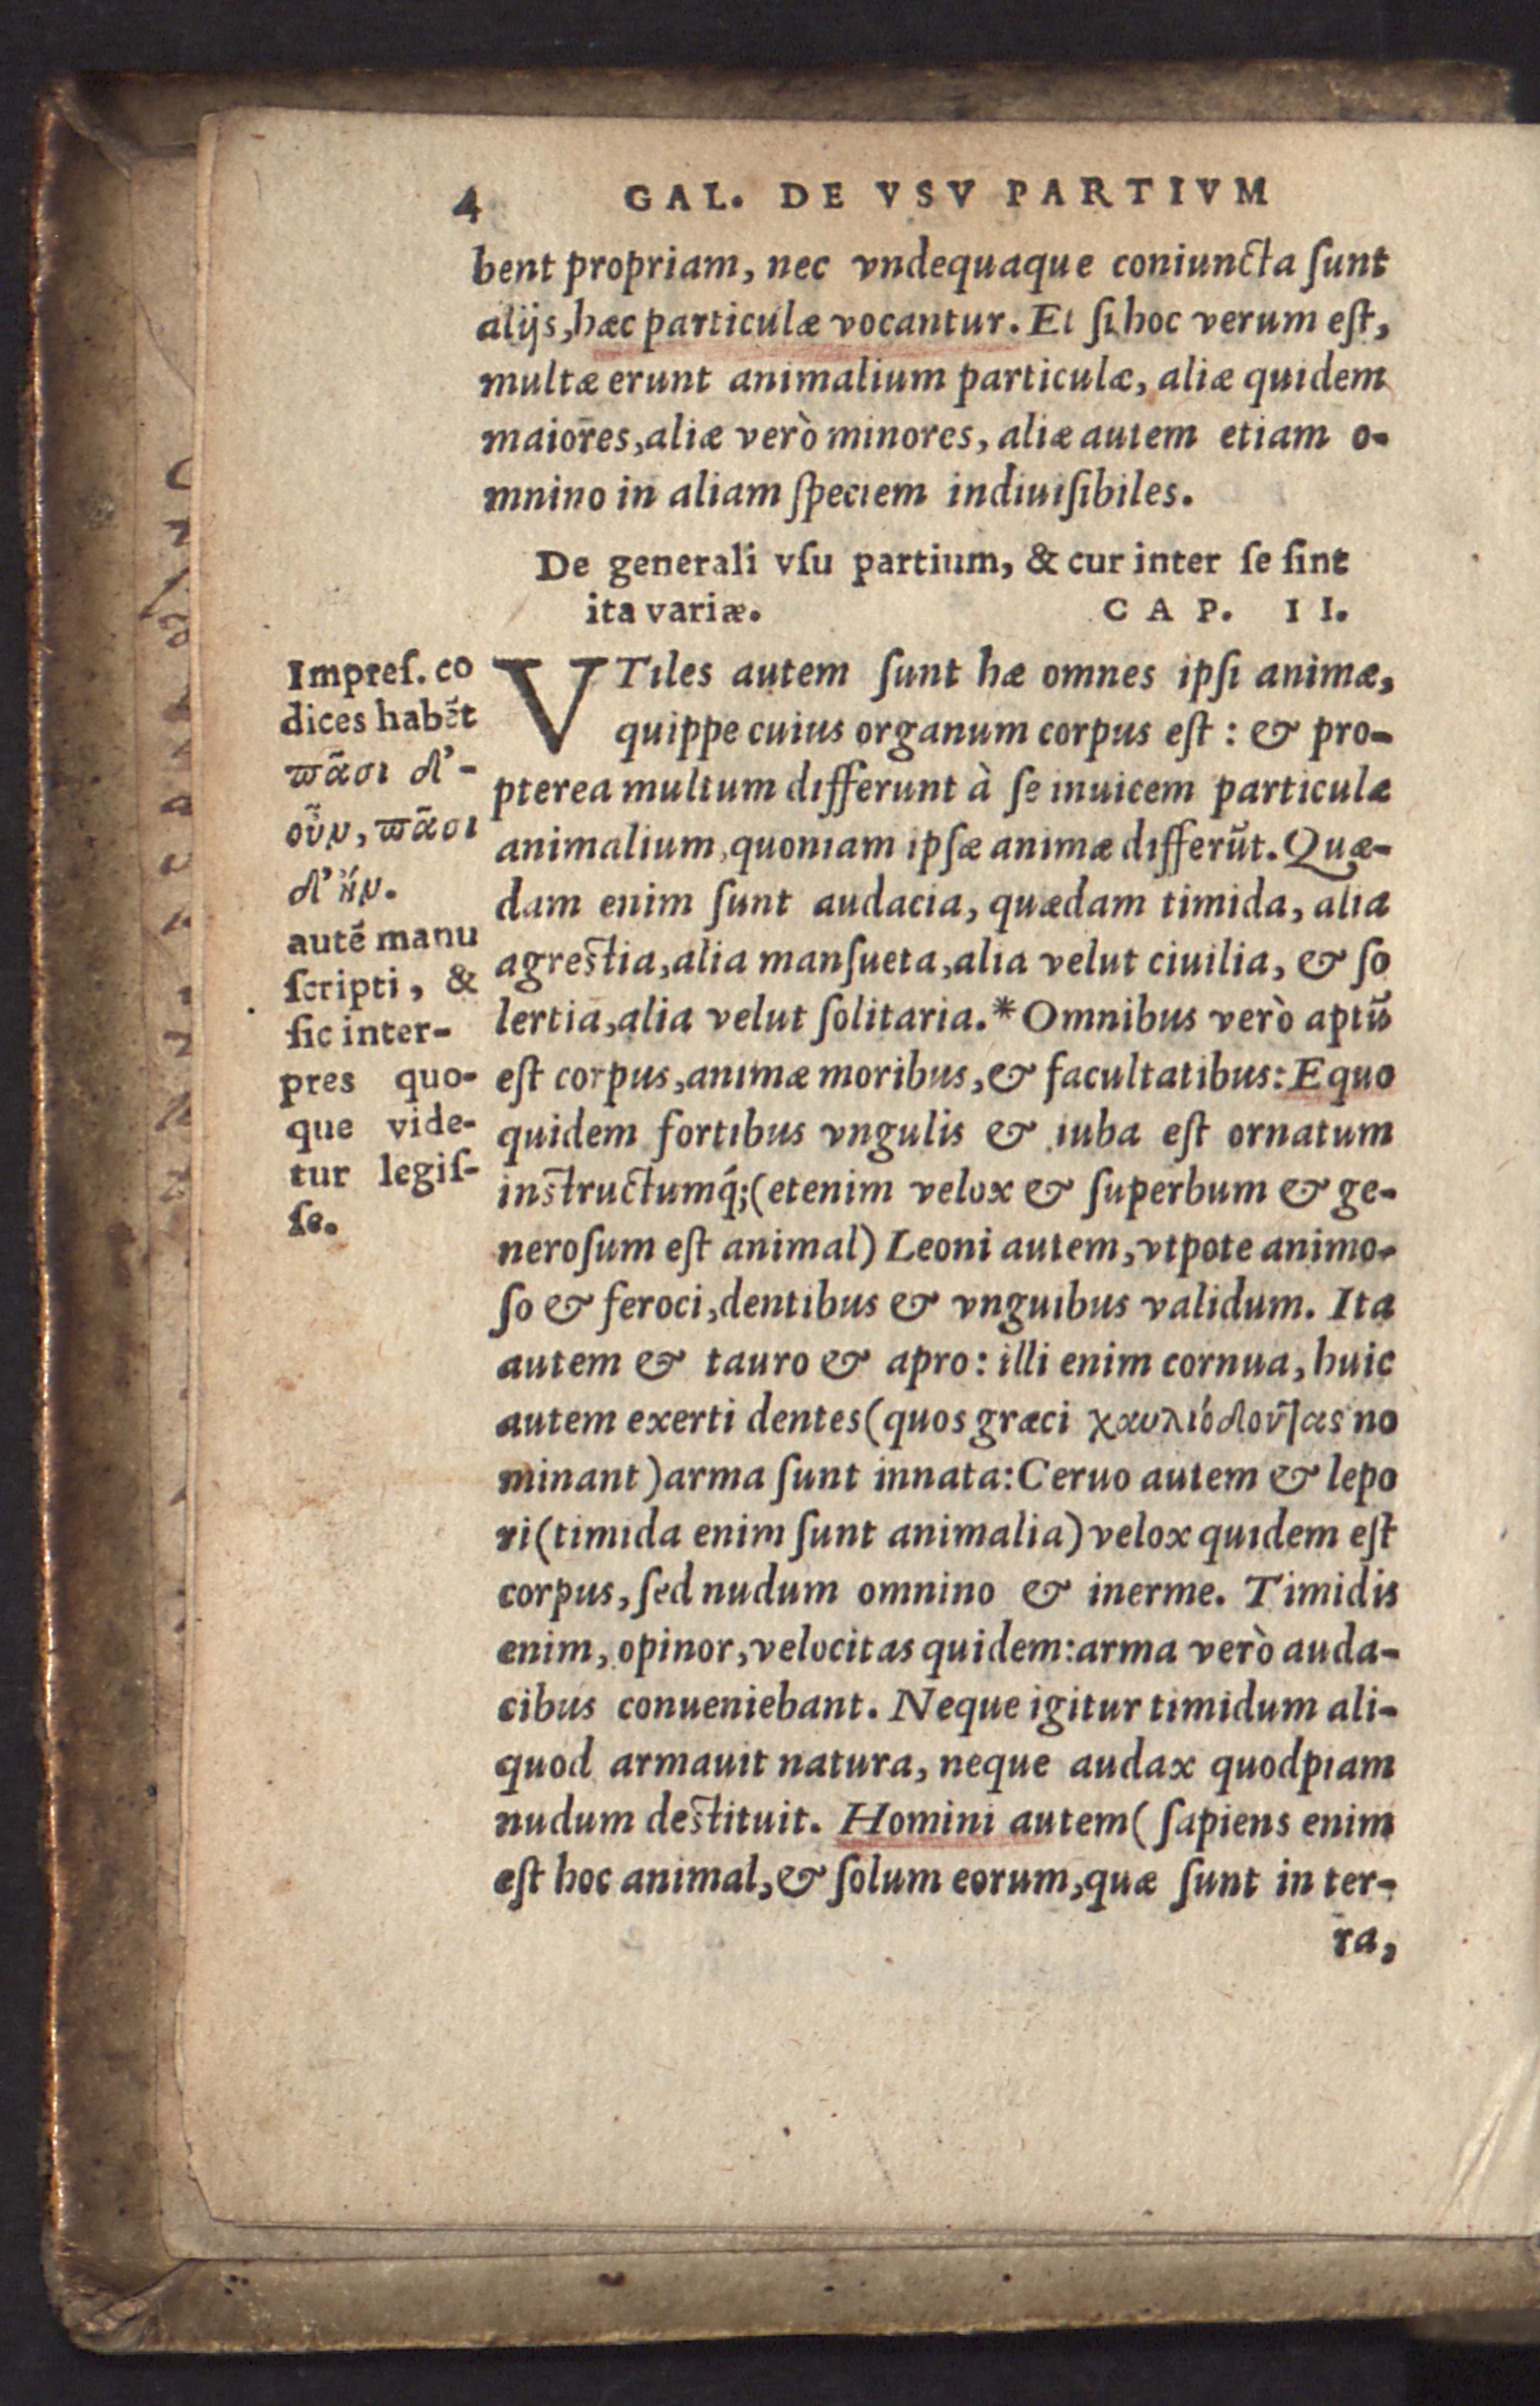 4 GAL. DE VSV PARTIVM
bent propriam, nec vndequaque coniuncta ſunt
alijs, hæc particulæ vocantur. Et ſi hoc verum eſt,
multæ erunt animalium particulæ, aliæ quidem
maiores, aliæ verò minores, aliæ autem etiam o-
mnino in aliam ſpeciem indiuiſibiles.
De generali vſu partium, & cur inter ſe ſint
ita variæ. CAP. II.
VTiles autem ſunt hæ omnes ipſi animæ,
quippe cuius organum corpus eſt : & pro-
pterea multum differunt à ſe inuicem particulæ
animalium, quoniam ipſæ animæ differūt. Quæ-
dam enim ſunt audacia, quædam timida, alia
agreſtia, alia manſueta, alia velut ciuilia, & ſo
lertia, alia velut ſolitaria.* Omnibus verò aptū
eſt corpus, animæ moribus, & facultatibus: Equo
quidem fortibus vngulis & iuba eſt ornatum
inſtructumq́;(etenim velox & ſuperbum & ge-
neroſum eſt animal) Leoni autem, vtpote animo-
ſo & feroci, dentibus & vnguibus validum. Ita
autem & tauro & apro: illi enim cornua, huic
autem exerti dentes (quos græci χαυλιόδοντας no
minant) arma ſunt innata: Ceruo autem & lepo
ri (timida enim ſunt animalia) velox quidem eſt
corpus, ſed nudum omnino & inerme. Timidis
enim, opinor, velocitas quidem: arma verò auda-
cibus conueniebant. Neque igitur timidum ali-
quod armauit natura, neque audax quodpiam
nudum deſtituit. Homini autem (ſapiens enim
eſt hoc animal, & ſolum eorum, quæ ſunt in ter-
ra,
Impreſ. co
dices habēt
πᾶσι δ'-
οὖν, πᾶσι
δ' ἤν.
autē manu
ſcripti, &
ſic inter-
pres quo-
que vide-
tur legiſ-
ſe.